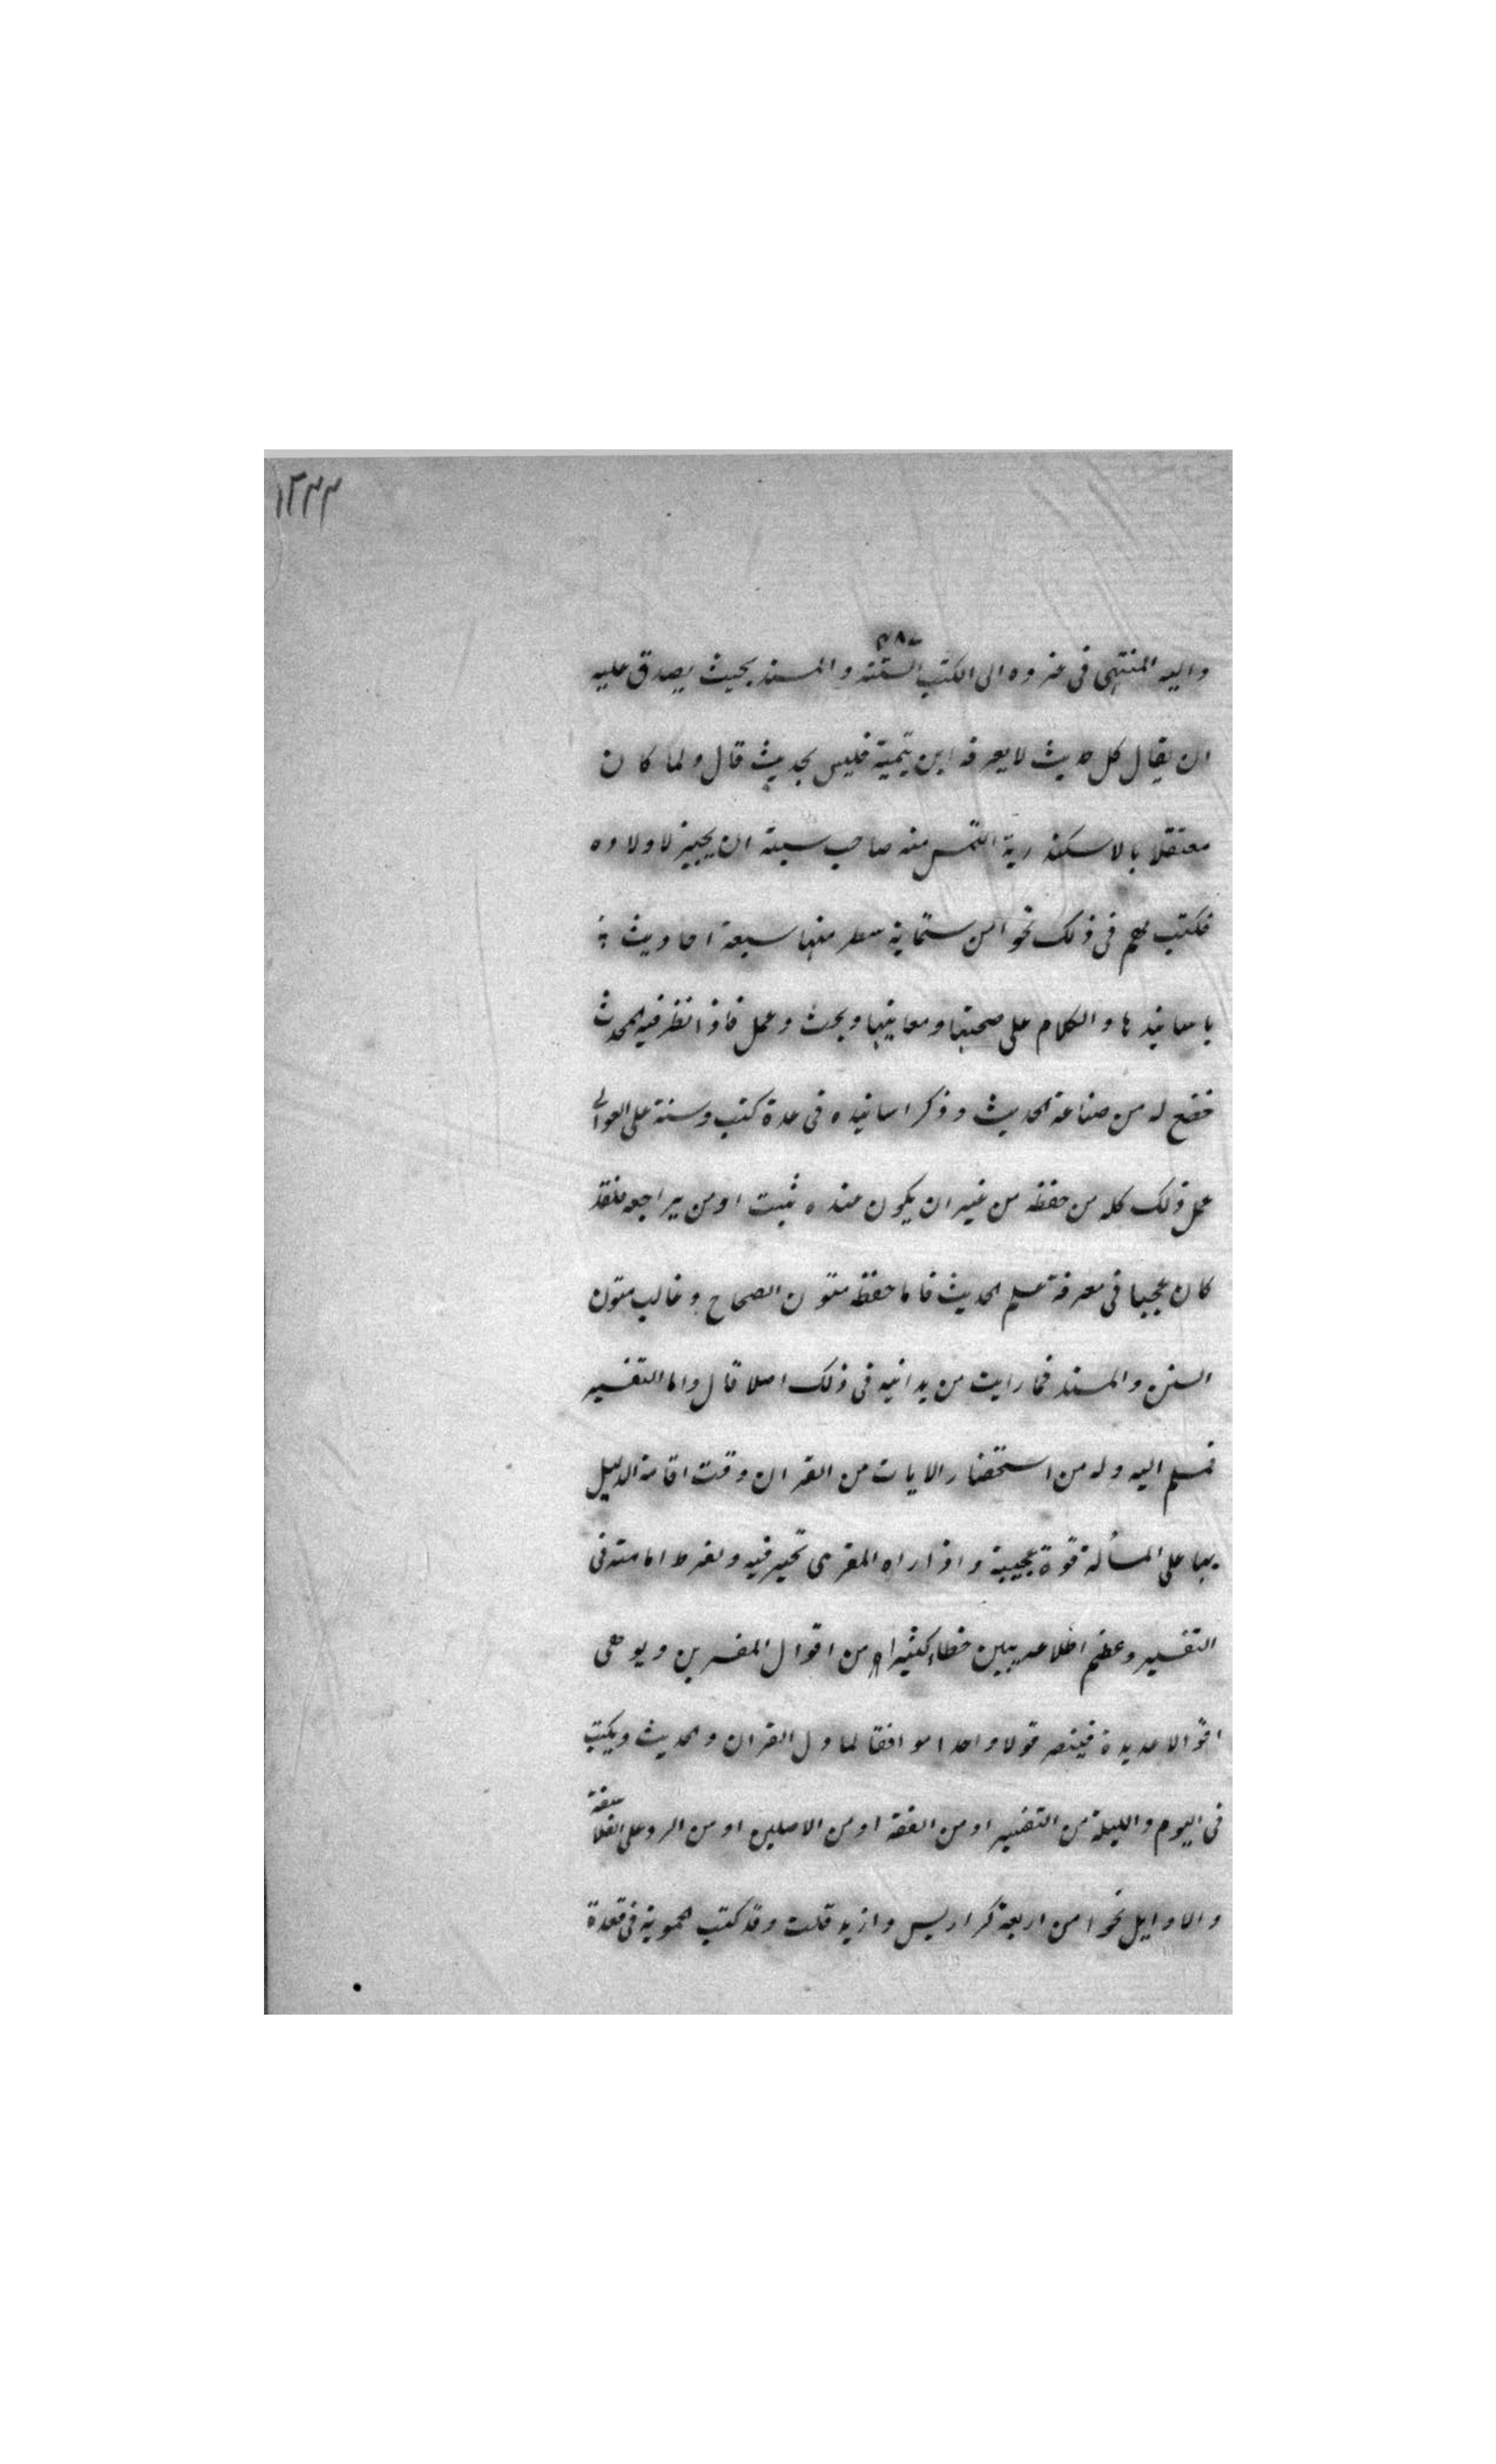 ١٣٢٣
واليه المنتهى فى عزوه الى الكتب الستة والمسند بحيث يصدق عليه
ان يقال كل حديث لا يعرفه ابن تيمية فليس بحديث قال ولما كان
معتقلا بالاسكندرية التمس منه صاحب سبتة ان يجيز لاولاده
فكتب لهم فى ذلك نحوا من ستماية سطر منها سبعة احاديث
باسانيدها والكلام على صحتها ومعانيها وبحث وعمل فاذا نظر فيه المحدث
خضع له من صناعة الحديث وذكر اسانيده فى عدة كتب وسنة على العوالى
عمل ذلك كله من حفظه من غير ان يكون عنده ثبت او من يراجعه فلقد
كان عجيبا فى معرفة علم الحديث فاما حفظه متون الصحاح وغالب متون
السنن والمسند فما رايت من يدانيه فى ذلك اصلا قال واما التفسير
فسلم اليه وله من استحضار الايات من القران وقت اقامة الدليل
بها على المسألة قوة عجيبة واذا راه المقرى تحير فيه ولفرط امامته فى
التفسير وعظم اطلاعه يبين خطاء كثيرا من اقوال المفسرين ويوهى
اقوالا عديدة فينصر قولا واحدا موافقا لما دل القران والحديث ويكتب
فى اليوم والليلة من التفسير او من الفقه او من الاصلين او من الرد على الفلاسفة
والاوايل نحوا من اربعة كراريس وازيد قلت وقد كتب الحموية فى قعدة